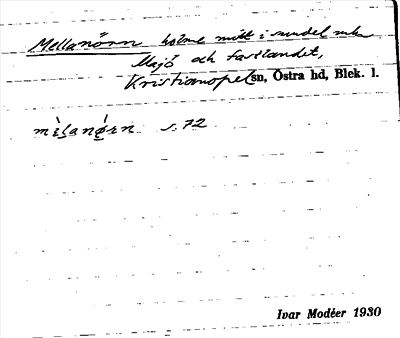 Mellanörn holme mitt i sundet m.
Mejö och fastlandet,
Kristianopel sn, Östra hd, Blek. l.
s. 72
Ivar Modéer 1930